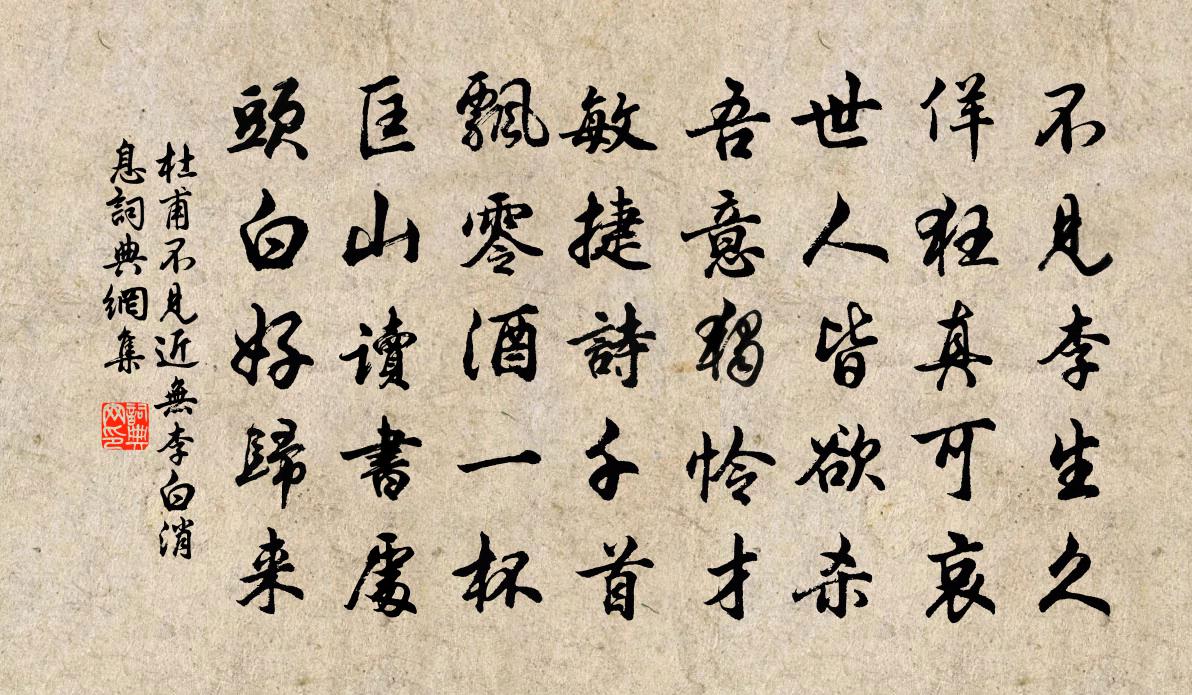 不見李生久
佯狂真可哀
世人皆欲杀
吾意獨怜才
敏捷詩千首
飄零酒一杯
匡山讀書處
頭白好歸来
杜甫不見近無李白消
息詞典網集
詞典
网印